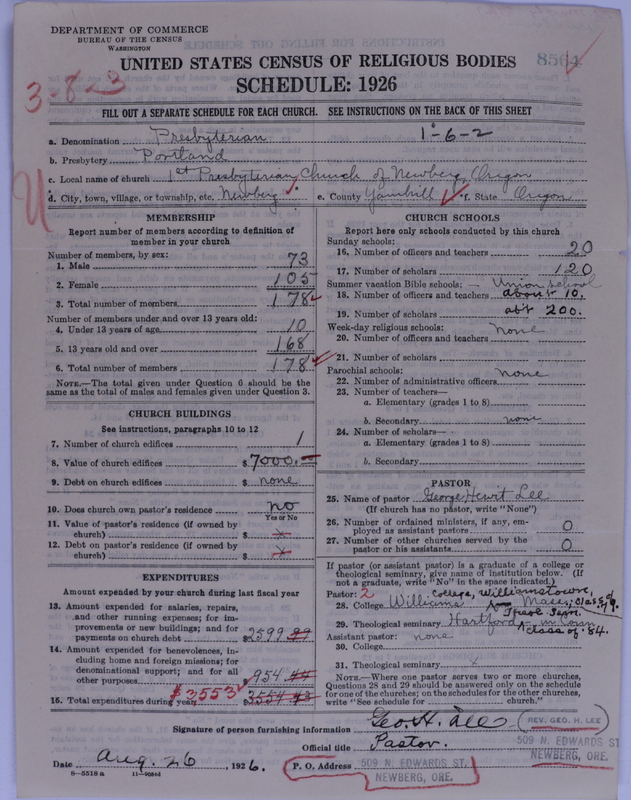 DEPARTMENT OF COMMERCE
BUREAU OF THE CENSUS
WASHINGTON
UNITED STATES CENSUS OF RELIGIOUS BODIES
8564
SCHEDULE: 1926
3-8-23
FILL OUT A SEPARATE SCHEDULE FOR EACH CHURCH. SEE INSTRUCTIONS ON THE BACK OF THIS SHEET
a. Denomination Presbyterian 1-6-2
b. Presbytery Portland
c. Local name of church 1st Presbyterian Church of Newberg, Oregon
d. City, town, village, or township, etc. Newberg e. County Yamhill f. State Oregon
MEMBERSHIP
Report number of members according to definition of
member in your church
Number of members, by sex:
1. Male 73
2. Female 105
3. Total number of members 178
Number of members under and over 13 years old:
4. Under 13 years of age 10
5. 13 years old and over 168
6. Total number of members 178
NOTE.—The total given under Question 6 should be
same as the total of males and females given under Question 3.
CHURCH BUILDINGS
See instructions, paragraphs 10 to 12
7. Number of church edifices 1
8. Value of church edifices $ 7000.
9. Debt on church edifices $ none
10. Does church own pastor's residence no
Yes or No
11. Value of pastor's residence (if owned by
church) $ x
12. Debt on pastor's residence (if owned by
church) $ x
EXPENDITURES
Amount expended by your church during last fiscal year
13. Amount expended for salaries, repairs,
and other running expenses; for im-
provements or new buildings; and for
payments on church debt $ 2599
14. Amount expended for benevolences, in-
cluding home and foreign missions; for
denominational support; and for all
other purposes $ 954
15. Total expenditures during year $3553 $ 3554
CHURCH SCHOOLS
Report here only schools conducted by this church
Sunday schools:
16. Number of officers and teachers 20
17. Number of scholars 120
Summer vacation Bible schools: — Union School
18. Number of officers and teachers about 10.
19. Number of scholars abt 200.
Week-day religious schools: none
20. Number of officers and teachers
21. Number of scholars
Parochial schools: none
22. Number of administrative officers
23. Number of teachers—
a. Elementary (grades 1 to 8)
b. Secondary none
24. Number of scholars—
a. Elementary (grades 1 to 8)
b. Secondary
PASTOR
25. Name of pastor George Hewit Lee
(If church has no pastor, write "None")
26. Number of ordained ministers, if any, em-
ployed as assistant pastors 0
27. Number of other churches served by the
pastor or his assistants 0
If pastor (or assistant pastor) is a graduate of a college or
theological seminary, give name of institution below. (If
not a graduate, write "No" in the space indicated.)
Pastor: 2 College, Williamstown,
28. College Williams Mass, Class of
29. Theological seminary Hartford Theol. Sem. in Conn
class of '84.
Assistant pastor: none
30. College
31. Theological seminary
NOTE.—Where one pastor serves two or more churches,
Questions 28 and 29 should be answered only on the schedule
for one of the churches; on the schedules for the other churches,
write "See schedule for church."
Signature of person furnishing information Geo. H. Lee REV. GEO. H. LEE
Official title Pastor. 509 N. EDWARDS ST
NEWBERG, ORE.
Date Aug. 26, 1926. P. O. Address 509 N. EDWARDS ST.
NEWBERG, ORE.
8—5518 a